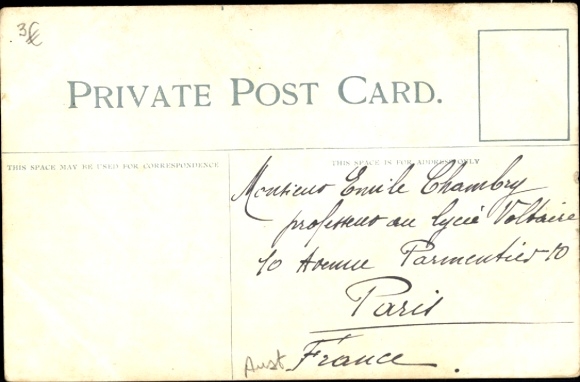 PRIVATE POST CARD.
THIS SPACE MAY BE USED FOR CORRESPONDENCE
THIS SPACE IS FOR ADDRESS ONLY
Monsieur Emile Chambry
professeur au lycée Voltaire
10 Avenue Parmentier 10
Paris
France.
Aust